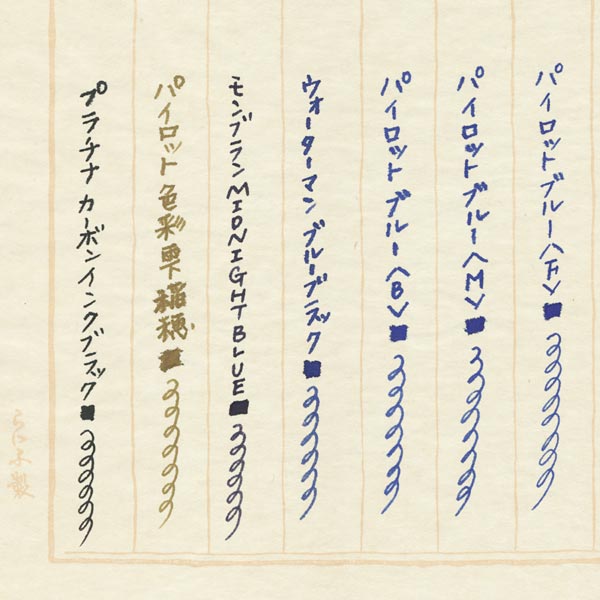 パイロットブルー〈F〉
パイロットブルー〈M〉
パイロット ブルー〈B〉
ウォーターマン ブルーブラック
モンブラン MIDNIGHT BLUE
パイロット 色彩雫 稲穂
プラチナ カーボンインクブラック